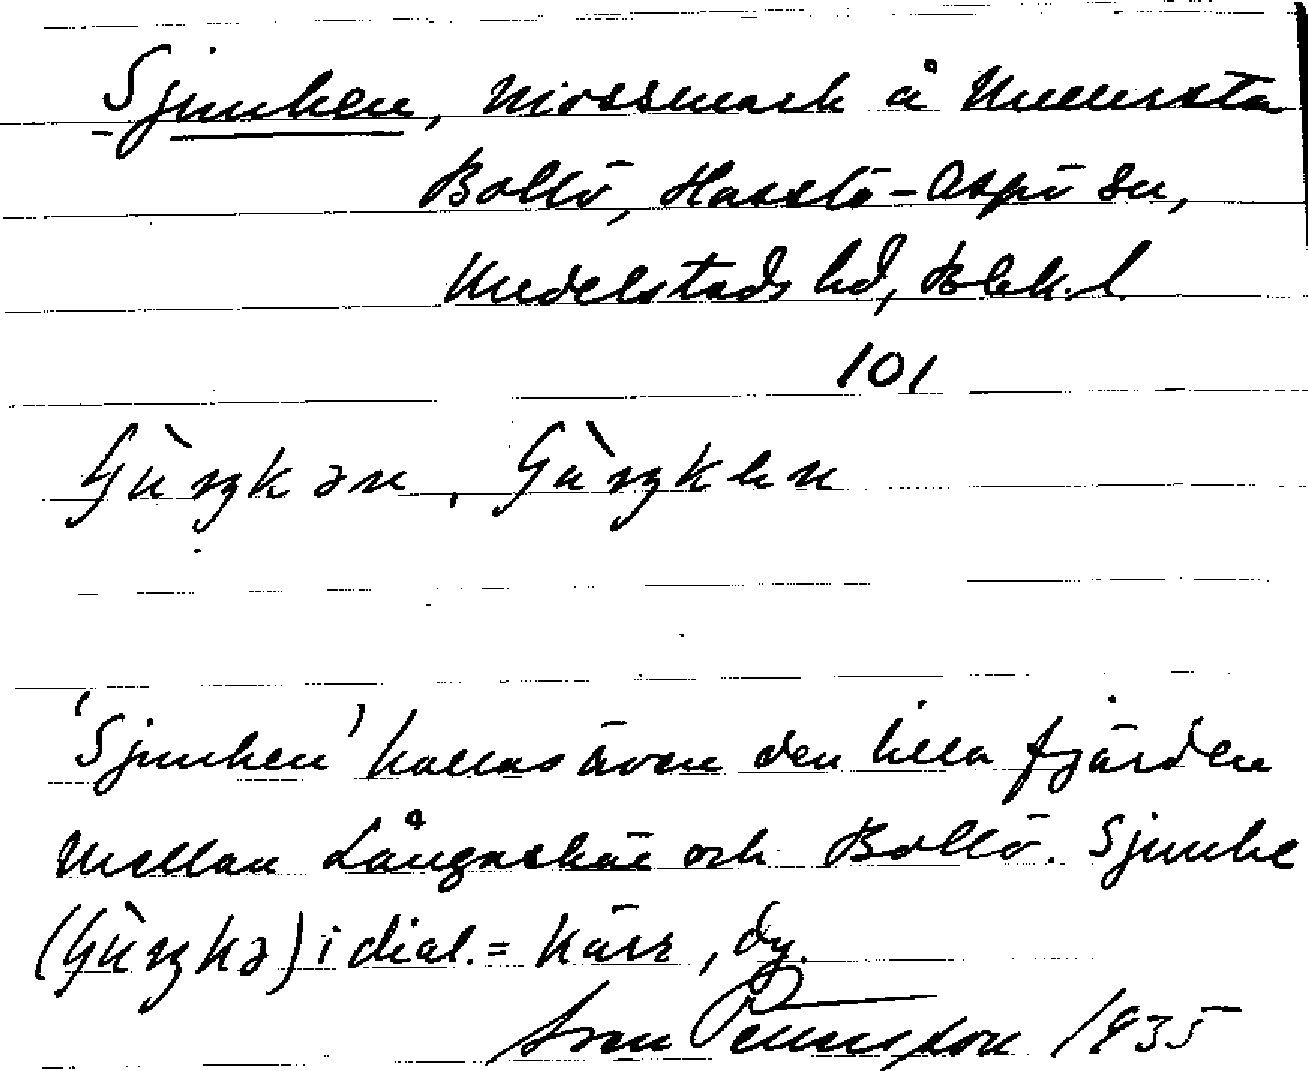 Sjunken, mossmark å
Bollö, Hasslö-Aspö sn,
Medelstads hd, Blek. l.
101
'Sjunken' kallas även den lilla fjärden
mellan Långaskär och Bollö. Sjunke
i dial. = kärr, dy.
Sven Pettersson 1935